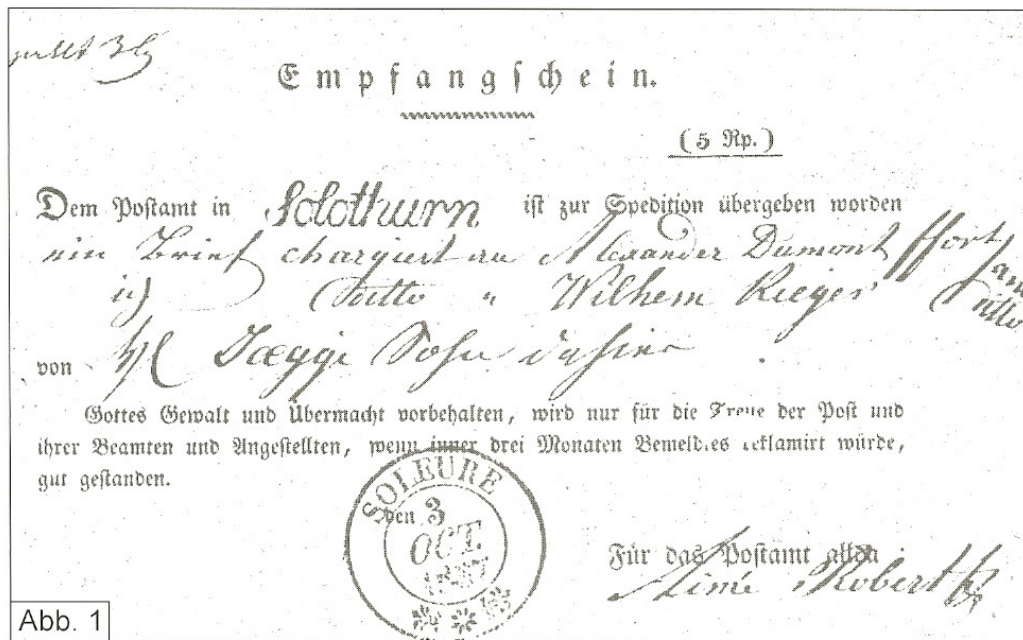 Empfangschein.
(5 Rp.)
Dem Postamt in Solothurn ist zur Spedition übergeben worden
ein Brief chargiert an Alexander Dumont
ditto " Wilhem Rieger
von Jaeggi Sohn dahier
Gottes Gewalt und Übermacht vorbehalten, wird nur für die Treue der Post und
ihrer Beamten und Angestellten, wenn inner drei Monaten reklamirt würde,
gut gestanden.
SOLEURE
den 3
OCT.
Für das Postamt allda
Aimé Robert
Abb. 1